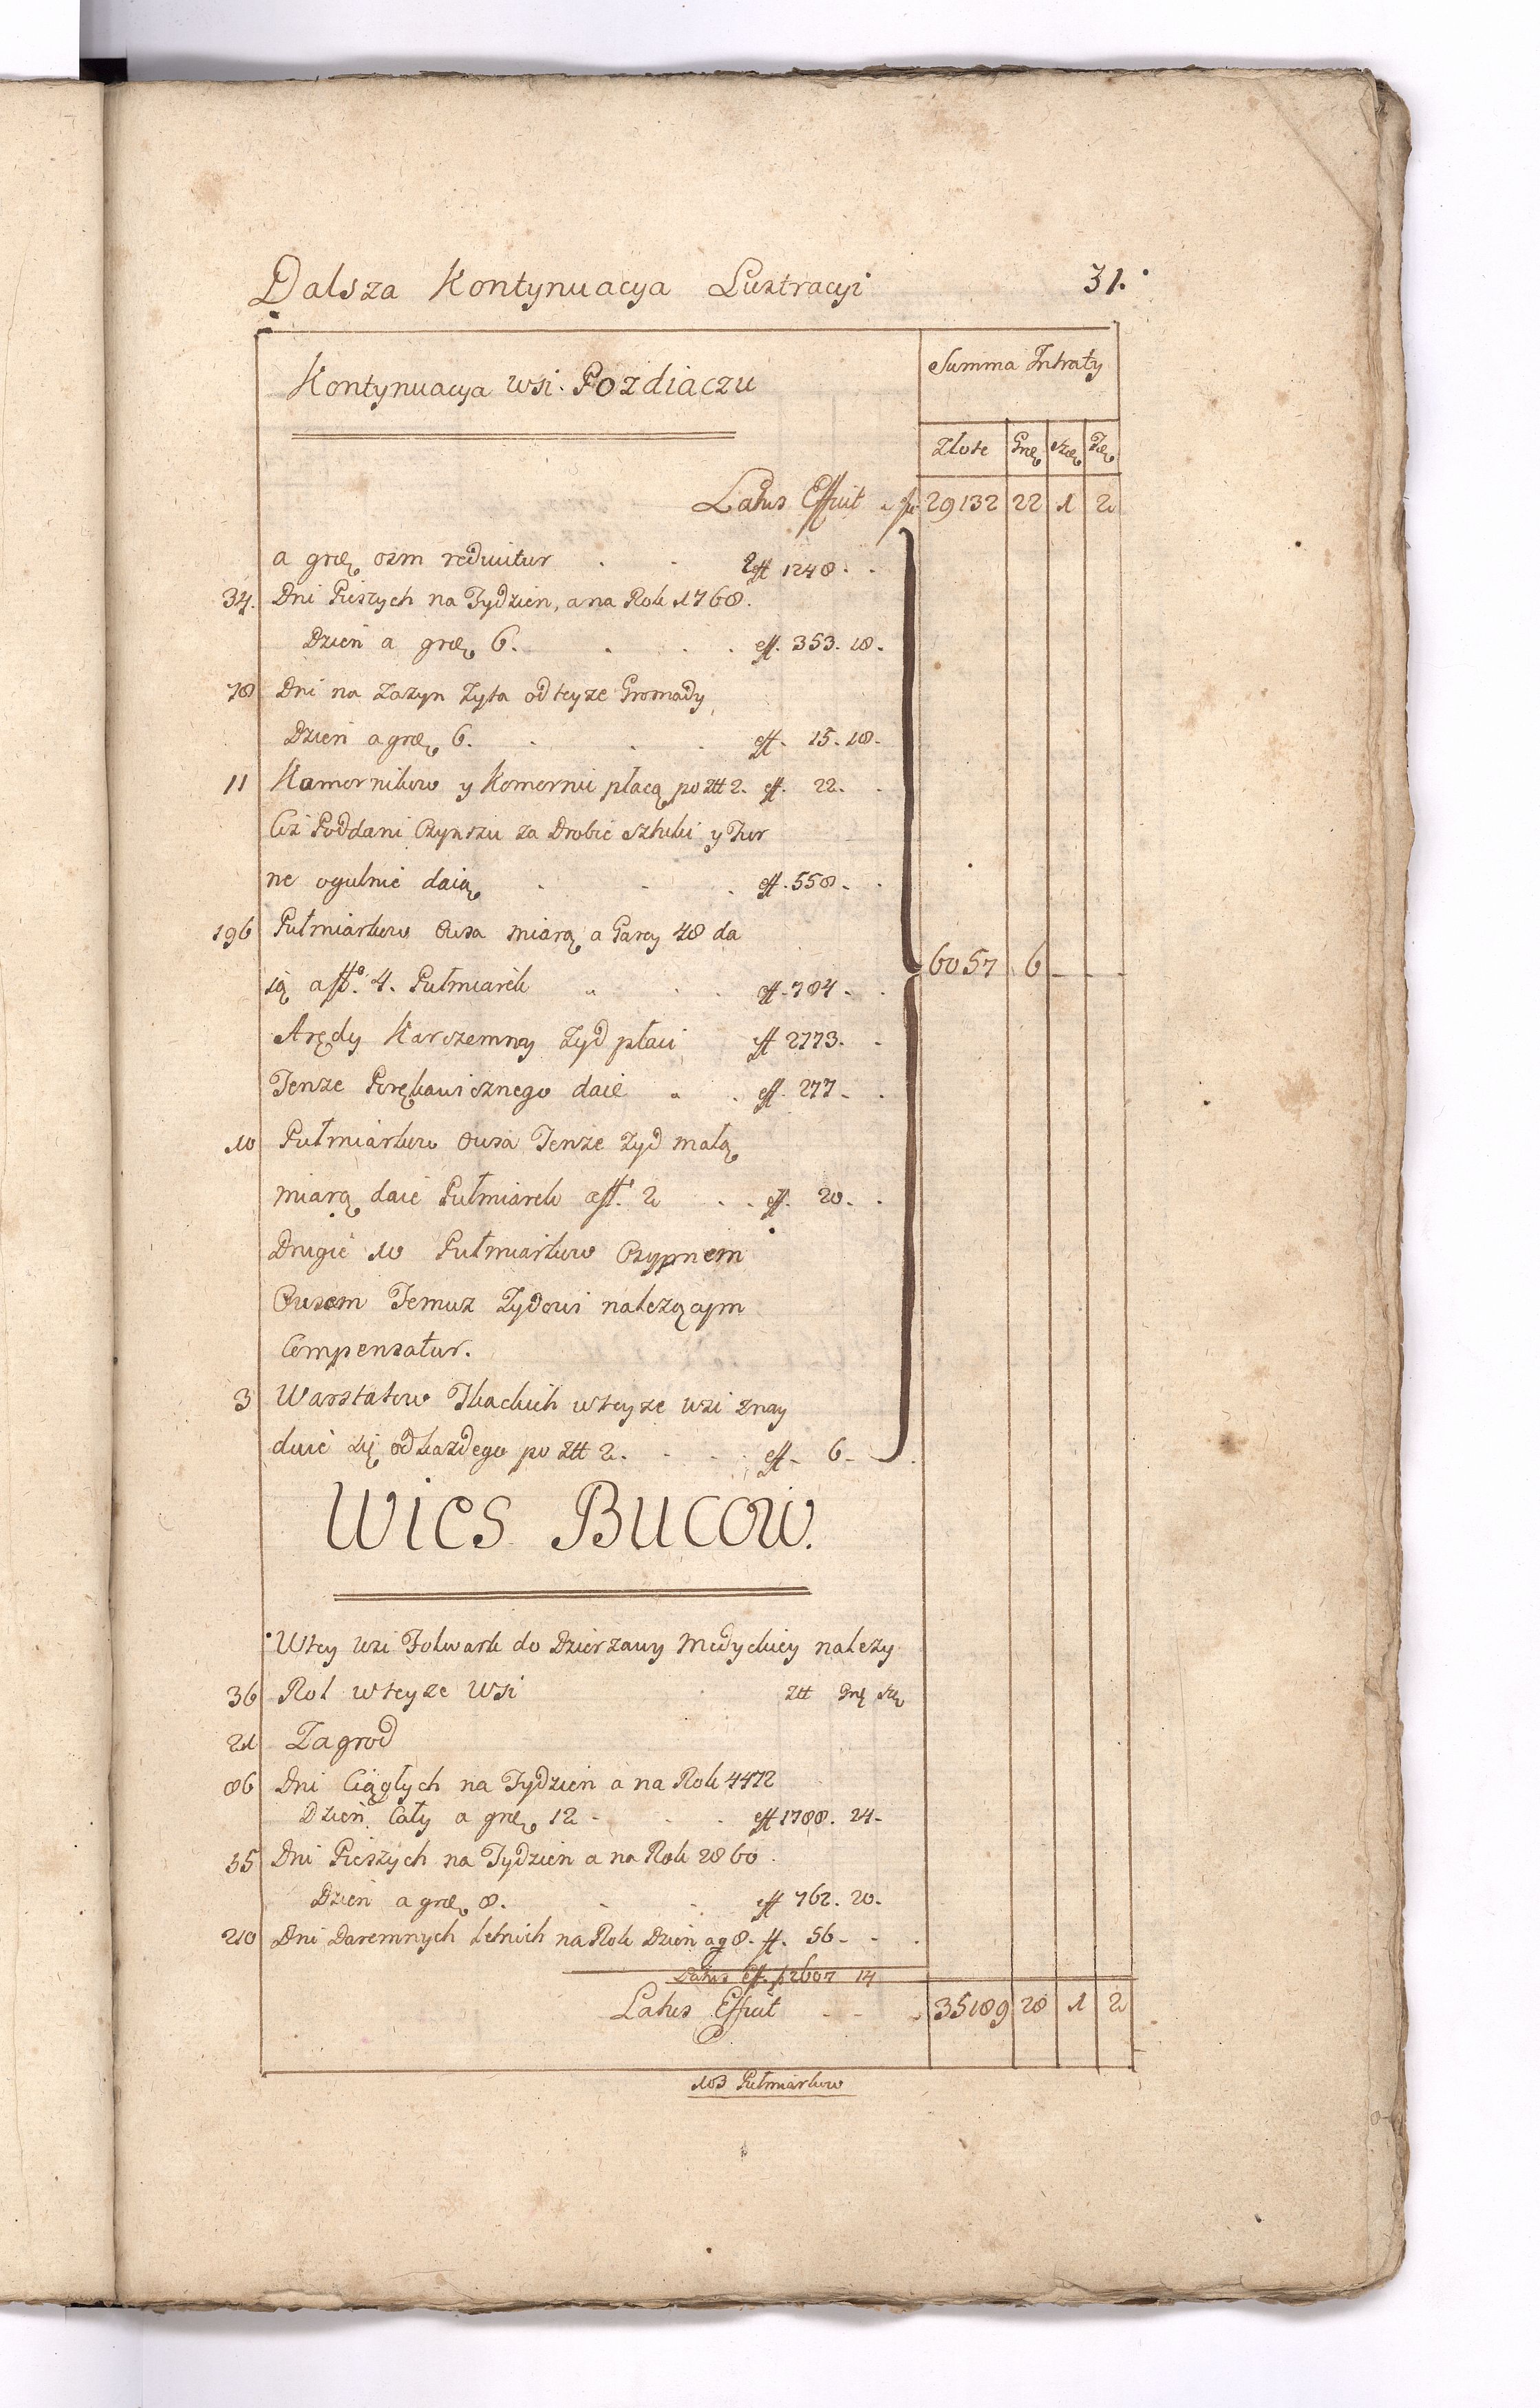 Dalsza Kontynuacya Lustracyi 31.
Kontynuacya wsi Pozdiaczu
Summa Intraty
Złote Grszę Szeę Ttę
Latus Efficit fl 29132 22 1 2
a grę osm reducitur . . eff 1248 . .
34. Dni Pieszych na Tydzien, a na Rok 1768.
Dzień a grę 6. . . . eff. 353. 18.
78 Dni na Zazyn Zyta od teyze Gromady
Dzień a grę 6. . . . eff. 15. 18.
11 Komornikow y Komornic płacą po Ztt 2. eff. 22. .
Ciż Poddani Czynszu za Drobie Sztuki y Fur
ne ogulnie daią . . . eff. 558. .
196 Pułmiarkow Owsa miarą a Garcy 48 da
ią a fl. 4. Pułmiarek . . . eff. 784. .
Arędy Karczemney Zyd płaci eff 2773. .
Tenze Porękawicznego daie . . eff. 277. .
10 Pułmiarkow Owsa Tenze Zyd małą
miarą daie Pułmiarek a fl. 2 . . eff. 20. .
Drugie 10 Pułmiarkow Osypnem
Owsem Temuz Zydowi nalezącym
Compensatur.
3 Warsztatow Tkackich w teyze wsi znay
duie się od kazdego po Ztt 2. . . . eff. 6.
6057 6 - -
WIES BUCOW.
W tey wsi Folwark do Dzierzawy Medyckiey nalezy
36 Rol w teyze Wsi Ztt Grę Szę
21 Zagrod
86 Dni Ciągłych na Tydzien a na Rok 4472
Dzień Cały a grę 12 . . . eff 1788. 24.
55 Dni Pieszych na Tydzien a na Rok 2860
Dzien a grę 8. . . eff 762. 20.
210 Dni Daremnych Letnich na Rok Dzien a g 8. ff. 56. . .
Latus Eff. f 2607 14
Latus Efficit . . . 35189 28 1 2
103 Pułmiarkow